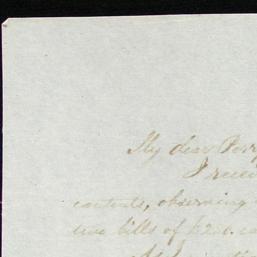 My dear Perry
I recei
contents, observing
two bills of £20.